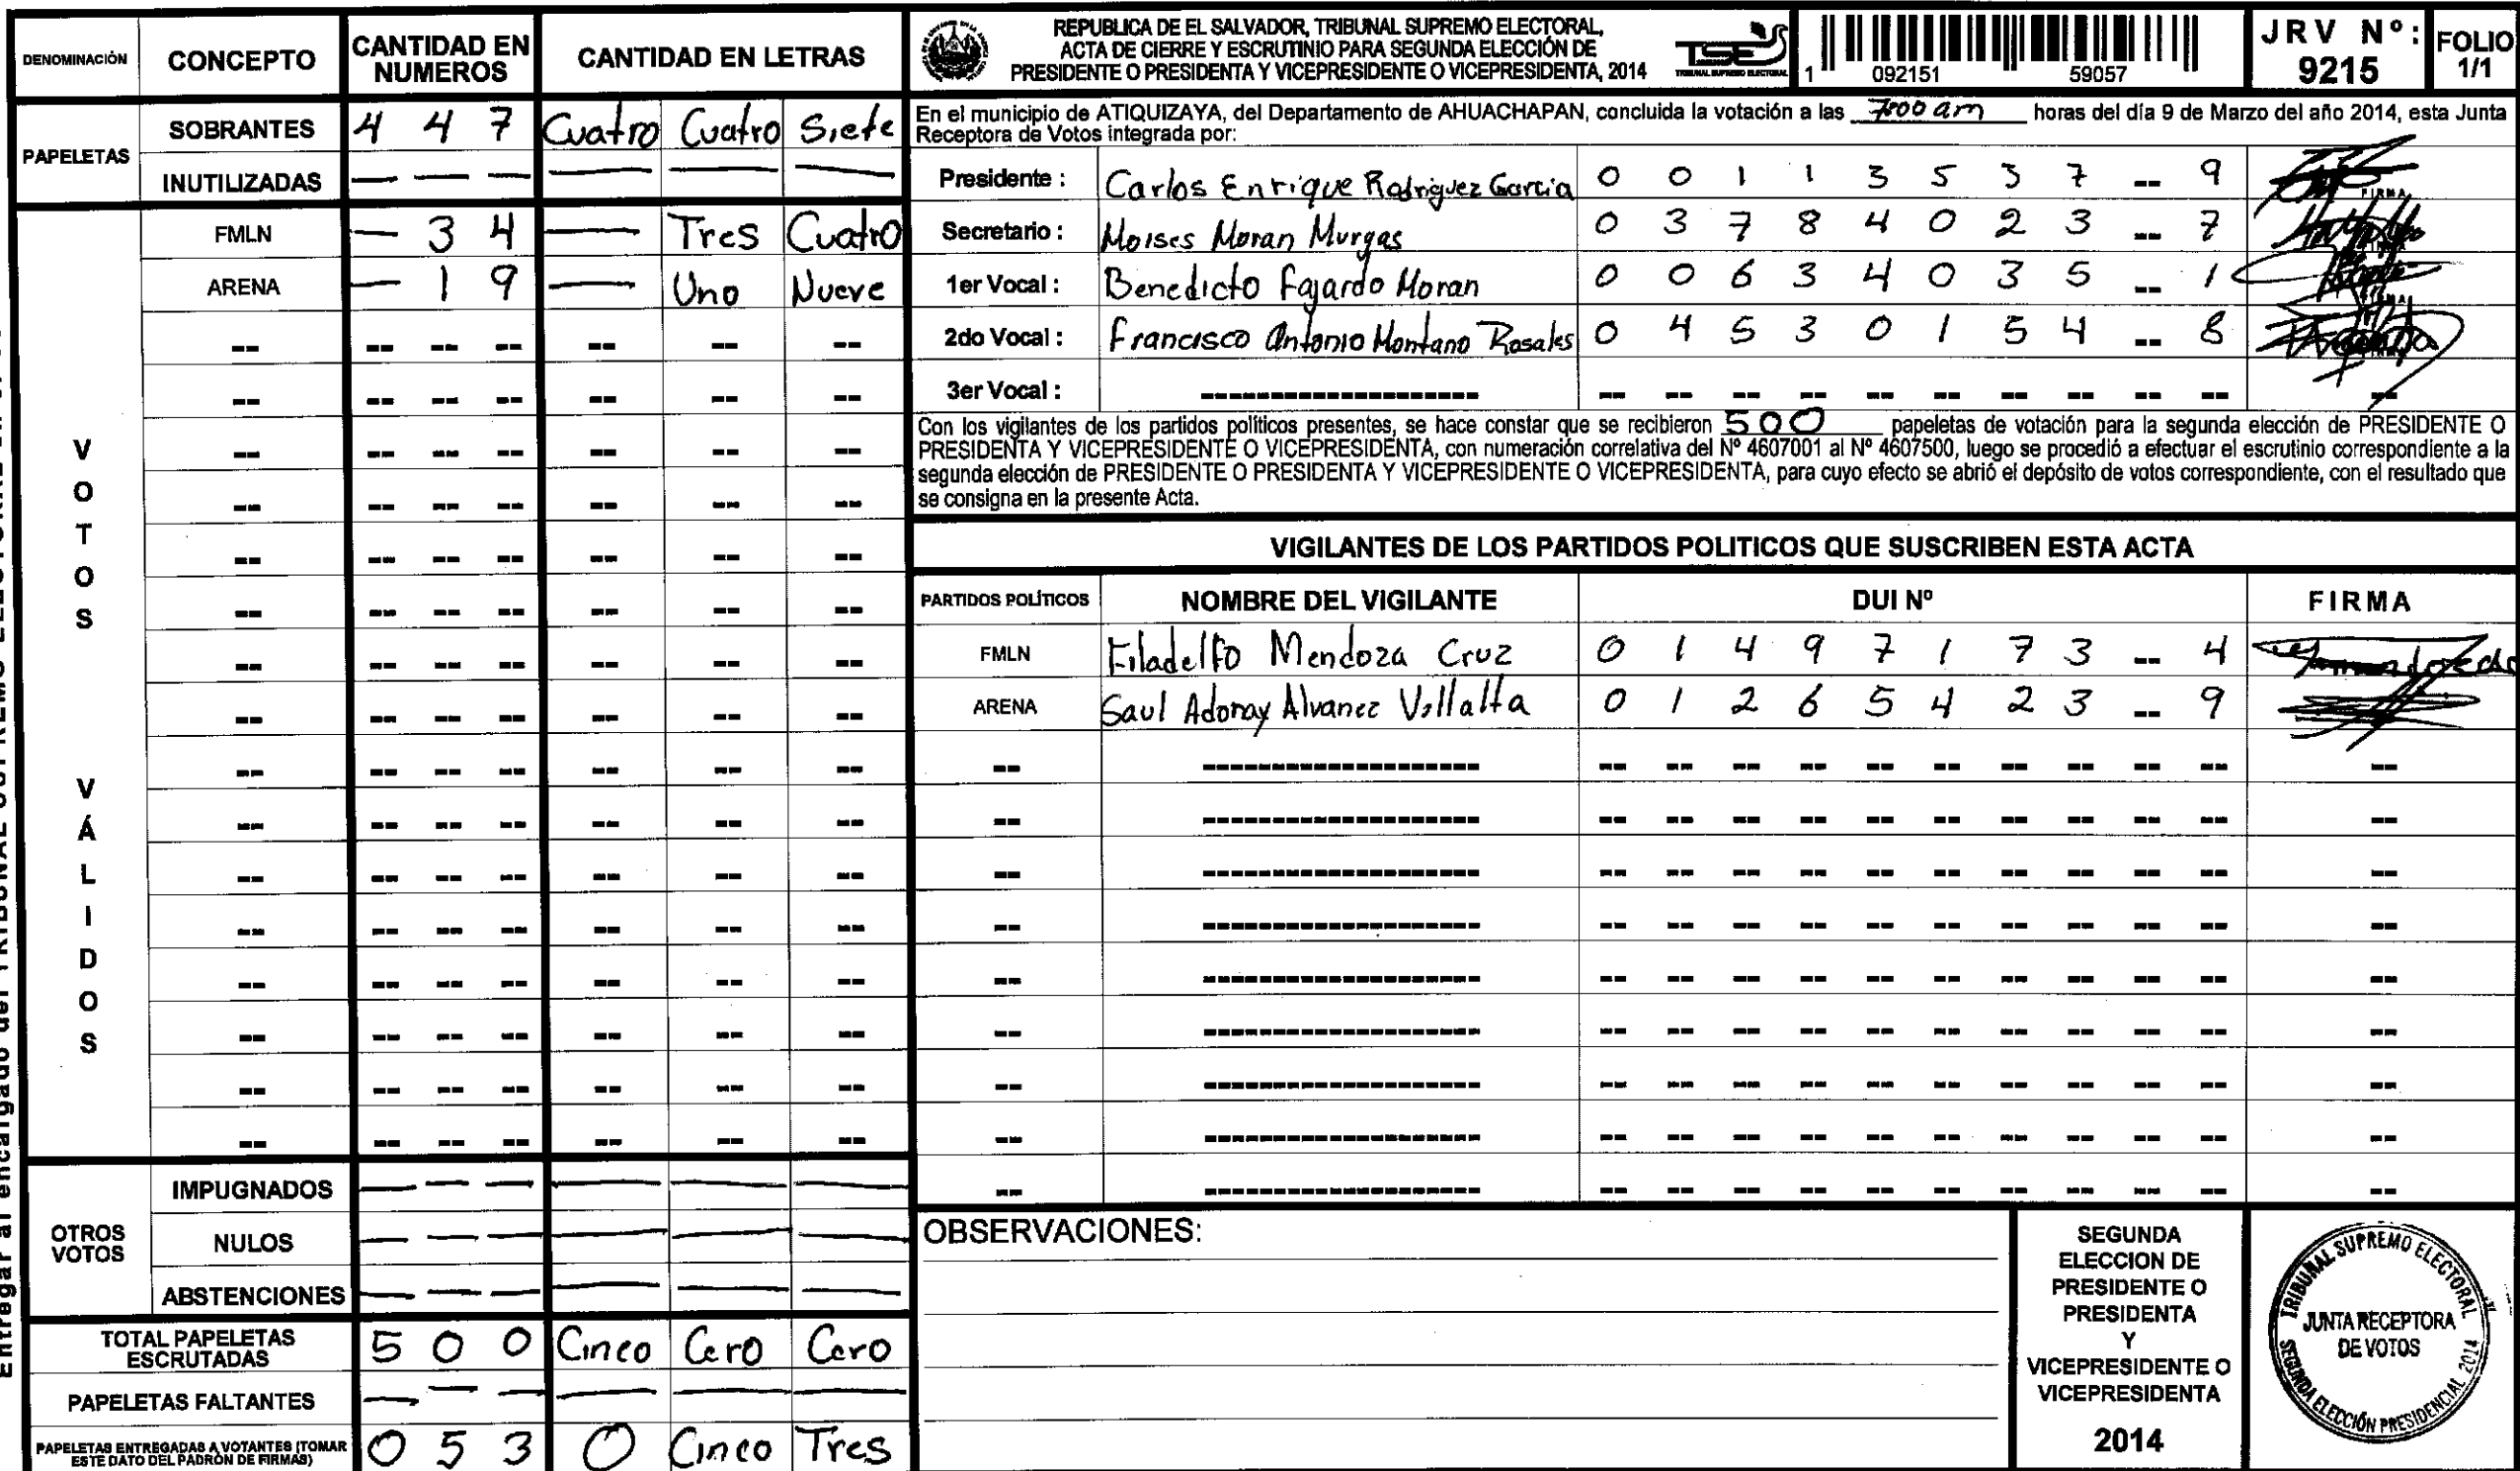 DENOMINACIÓN CONCEPTO CANTIDAD EN NUMEROS CANTIDAD EN LETRAS
PAPELETAS
SOBRANTES 4 4 7 Cuatro Cuatro Siete
INUTILIZADAS — — — — — —
VOTOS VÁLIDOS
FMLN — 3 4 — Tres Cuatro
ARENA — 1 9 — Uno Nueve
OTROS VOTOS
IMPUGNADOS — — — — — —
NULOS — — — — — —
ABSTENCIONES — — — — — —
TOTAL PAPELETAS ESCRUTADAS 5 0 0 Cinco Cero Cero
PAPELETAS FALTANTES — — — — — —
PAPELETAS ENTREGADAS A VOTANTES (TOMAR ESTE DATO DEL PADRÓN DE FIRMAS) 0 5 3 0 Cinco Tres
REPUBLICA DE EL SALVADOR, TRIBUNAL SUPREMO ELECTORAL,
ACTA DE CIERRE Y ESCRUTINIO PARA SEGUNDA ELECCIÓN DE
PRESIDENTE O PRESIDENTA Y VICEPRESIDENTE O VICEPRESIDENTA, 2014
TSE
TRIBUNAL SUPREMO ELECTORAL
1 092151 59057
JRV Nº: 9215
FOLIO 1/1
En el municipio de ATIQUIZAYA, del Departamento de AHUACHAPAN, concluida la votación a las 7:00 am horas del día 9 de Marzo del año 2014, esta Junta
Receptora de Votos integrada por:
Presidente : Carlos Enrique Rodriguez Garcia 0 0 1 1 3 5 3 7 -- 9 FIRMA
Secretario : Moises Moran Murgas 0 3 7 8 4 0 2 3 -- 7
1er Vocal : Benedicto Fajardo Moran 0 0 6 3 4 0 3 5 -- 1
2do Vocal : Francisco Antonio Montano Rosales 0 4 5 3 0 1 5 4 -- 8
3er Vocal :
Con los vigilantes de los partidos políticos presentes, se hace constar que se recibieron 500 papeletas de votación para la segunda elección de PRESIDENTE O
PRESIDENTA Y VICEPRESIDENTE O VICEPRESIDENTA, con numeración correlativa del Nº 4607001 al Nº 4607500, luego se procedió a efectuar el escrutinio correspondiente a la
segunda elección de PRESIDENTE O PRESIDENTA Y VICEPRESIDENTE O VICEPRESIDENTA, para cuyo efecto se abrió el depósito de votos correspondiente, con el resultado que
se consigna en la presente Acta.
VIGILANTES DE LOS PARTIDOS POLITICOS QUE SUSCRIBEN ESTA ACTA
PARTIDOS POLÍTICOS NOMBRE DEL VIGILANTE DUI Nº FIRMA
FMLN Filadelfo Mendoza Cruz 0 1 4 9 7 1 7 3 -- 4
ARENA Saul Adonay Alvanez Villalta 0 1 2 6 5 4 2 3 -- 9
OBSERVACIONES:
SEGUNDA
ELECCION DE
PRESIDENTE O
PRESIDENTA
Y
VICEPRESIDENTE O
VICEPRESIDENTA
2014
TRIBUNAL SUPREMO ELECTORAL
JUNTA RECEPTORA
DE VOTOS
SEGUNDA ELECCIÓN PRESIDENCIAL 2014
Entregar al encargado del TRIBUNAL SUPREMO